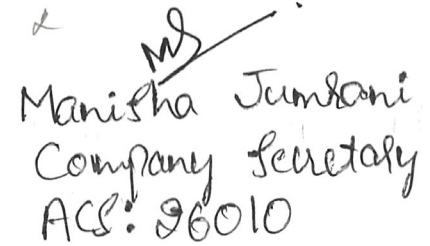 Manisha Jumrani
Company Secretary
ACS: 26010